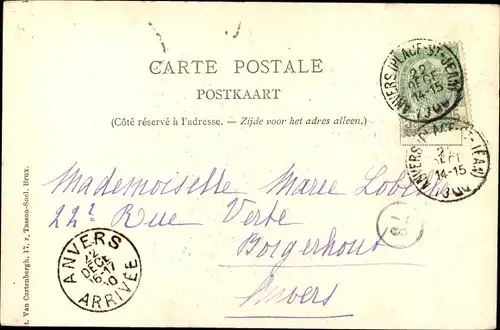 CARTE POSTALE
POSTKAART
(Côté réservé à l'adresse. — Zijde voor het adres alleen.)
ANVERS (PLACE-ST-JEAN)
22
DECE
14-15
ANVERS
22
14-15
Mademoiselle Marie
22 Rue Verte
Borgerhout
Anvers
ANVERS
22
DECE
16-17
ARRIVÉE
t. Van Cortenbergh, 17, r. Tasson-Snel. Brux.